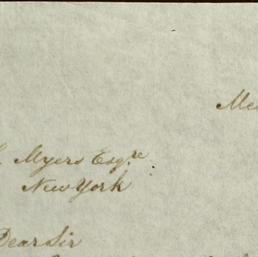 Myers Esqre
New York
Dear Sir